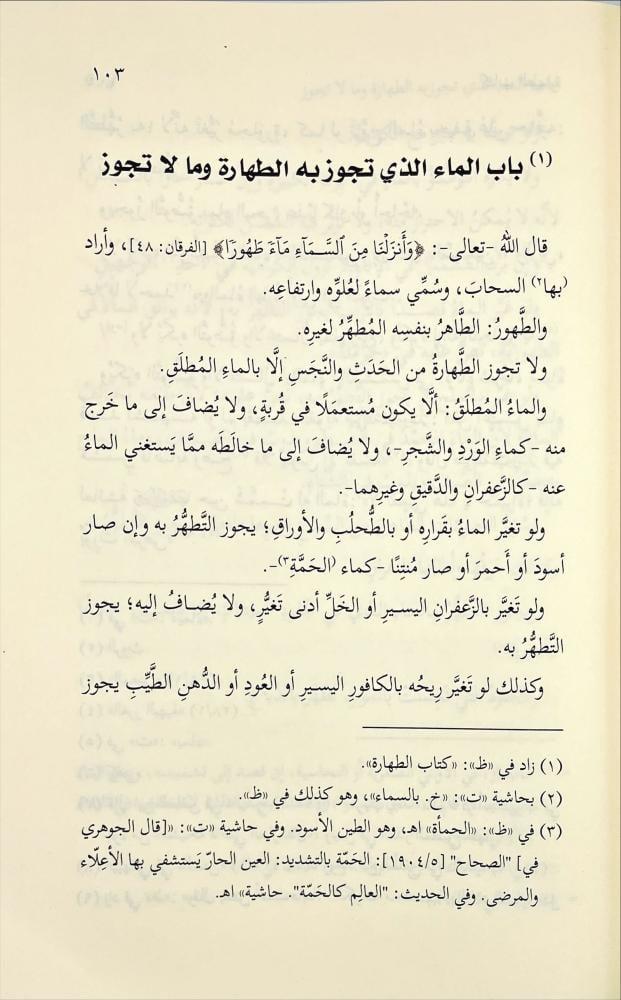 ١٠٣
(١) باب الماء الذي تجوز به الطهارة وما لا تجوز
قال اللهُ -تعالى-: ﴿وَأَنزَلْنَا مِنَ ٱلسَّمَآءِ مَآءً طَهُورًا﴾ [الفرقان: ٤٨]، وأراد
(بها٢) السحابَ، وسُمِّي سماءً لعُلوِّه وارتفاعِه.
والطَّهورُ: الطَّاهرُ بنفسِه المُطهِّرُ لغيرِه.
ولا تجوز الطَّهارةُ من الحَدَثِ والنَّجَسِ إلَّا بالماءِ المُطلَقِ.
والماءُ المُطلَقُ: ألَّا يكون مُستعمَلًا في قُربةٍ، ولا يُضافَ إلى ما خَرج
منه -كماءِ الوَرْدِ والشَّجرِ-، ولا يُضافَ إلى ما خالطَه ممَّا يَستغني الماءُ
عنه -كالزَّعفرانِ والدَّقيقِ وغيرِهما-.
ولو تغيَّر الماءُ بقَرارِه أو بالطُّحلُبِ والأوراقِ؛ يجوز التَّطهُّرُ به وإن صار
أسودَ أو أَحمرَ أو صار مُنتِنًا -كماء (الحَمَّةِ٣)-.
ولو تَغيَّر بالزَّعفرانِ اليسـيرِ أو الخَلِّ أدنى تَغيُّرٍ، ولا يُضـافُ إليه؛ يجوز
التَّطهُّرُ به.
وكذلك لو تَغيَّر رِيحُه بالكافورِ اليسـيرِ أو العُودِ أو الدُّهنِ الطَّيِّبِ يجوز
(١) زاد في «ظ»: «كتاب الطهارة».
(٢) بحاشية «ت»: «خ. بالسماء»، وهو كذلك في «ظ».
(٣) في «ظ»: «الحمأة» اهـ، وهو الطين الأسود. وفي حاشية «ت»: «[قال الجوهري
في] "الصحاح" [١٩٠٤/٥]: الحَمّة بالتشديد: العين الحارّ يَستشفي بها الأعِلّاء
والمرضى. وفي الحديث: "العالِم كالحَمّة". حاشية» اهـ.